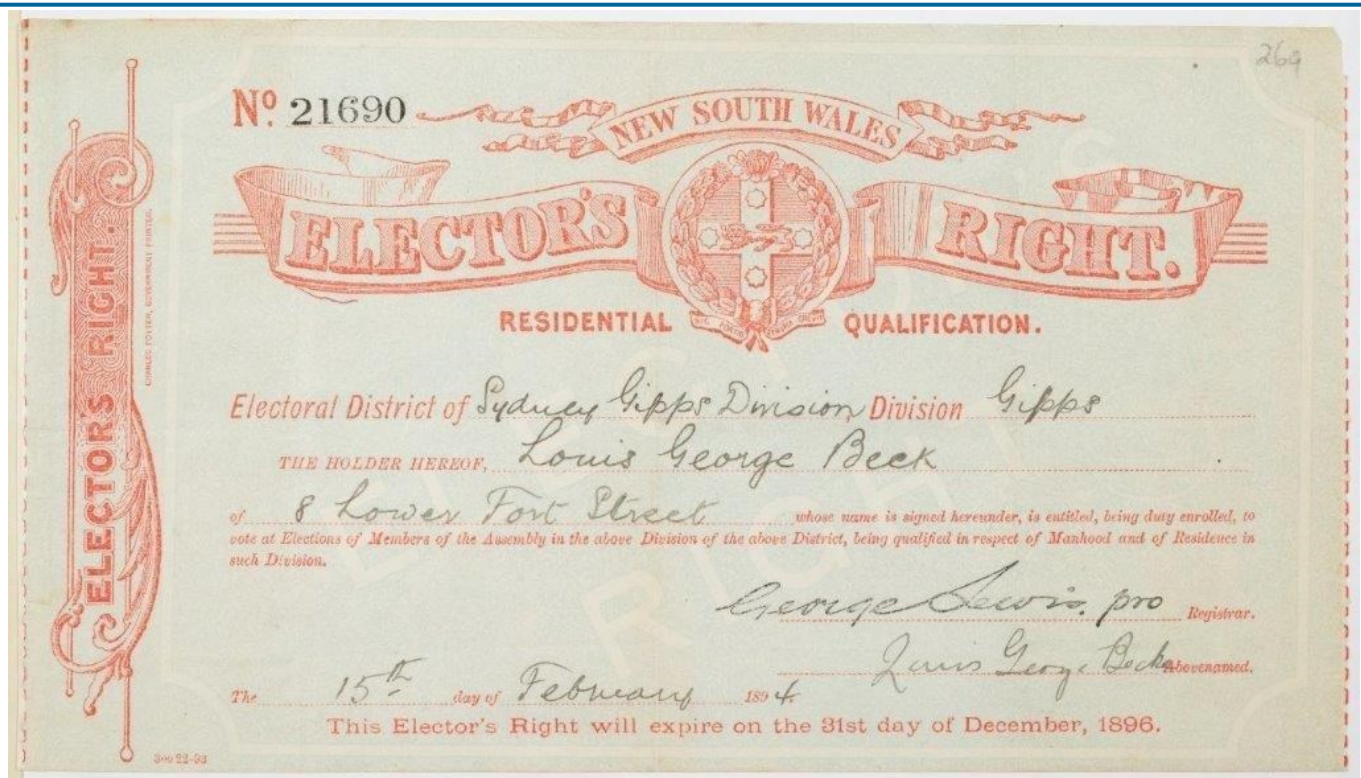 269
No. 21690
NEW SOUTH WALES
ELECTOR'S RIGHT.
RESIDENTIAL QUALIFICATION.
Electoral District of Sydney Gipps Division Division Gipps
THE HOLDER HEREOF, Louis George Beck
of 8 Lower Fort Street whose name is signed hereunder, is entitled, being duty enrolled, to
vote at Elections of Members of the Assembly in the above Division of the above District, being qualified in respect of Manhood and of Residence in
such Division.
George Lewis. pro Registrar.
Louis George Beck Abovenamed.
The 15th day of February 1894.
This Elector's Right will expire on the 31st day of December, 1896.
ELECTOR'S RIGHT.
CHARLES POTTER, GOVERNMENT PRINTER.
ELECTOR'S
RIGHT